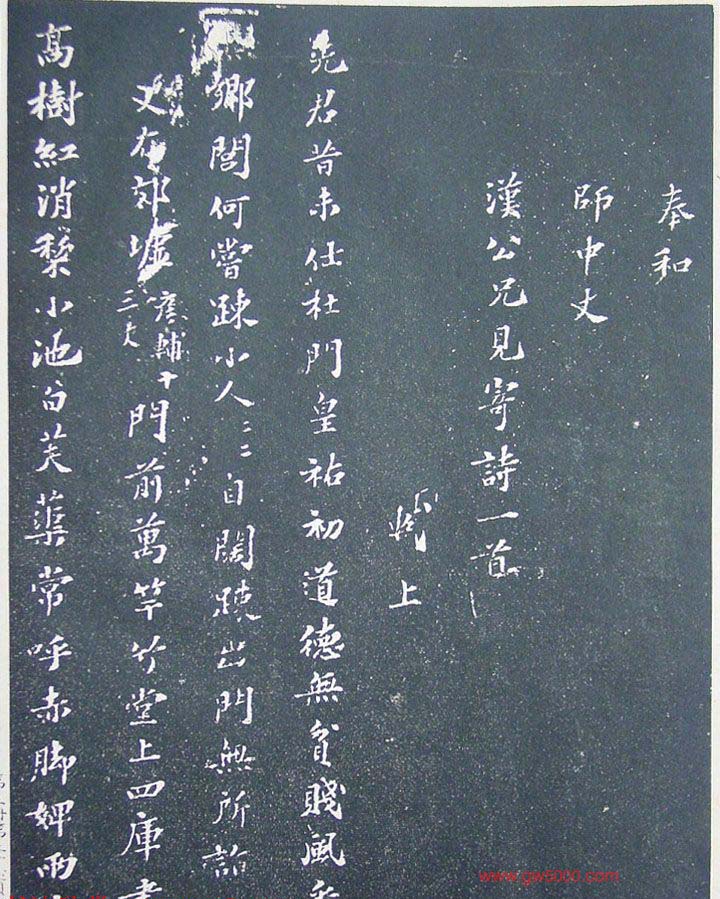 奉和
師中丈
漢公兄見寄詩一首
軾上
先君昔未仕杜門皇祐初道德無貧賤風采
鄉閭何嘗踈小人〻〻自闊踈出門無所詣
丈在郊墟彥輔十三丈門前萬竿竹堂上四庫書
高樹紅消棃小池白芙蕖常呼赤脚婢雨
www.gw5000.com